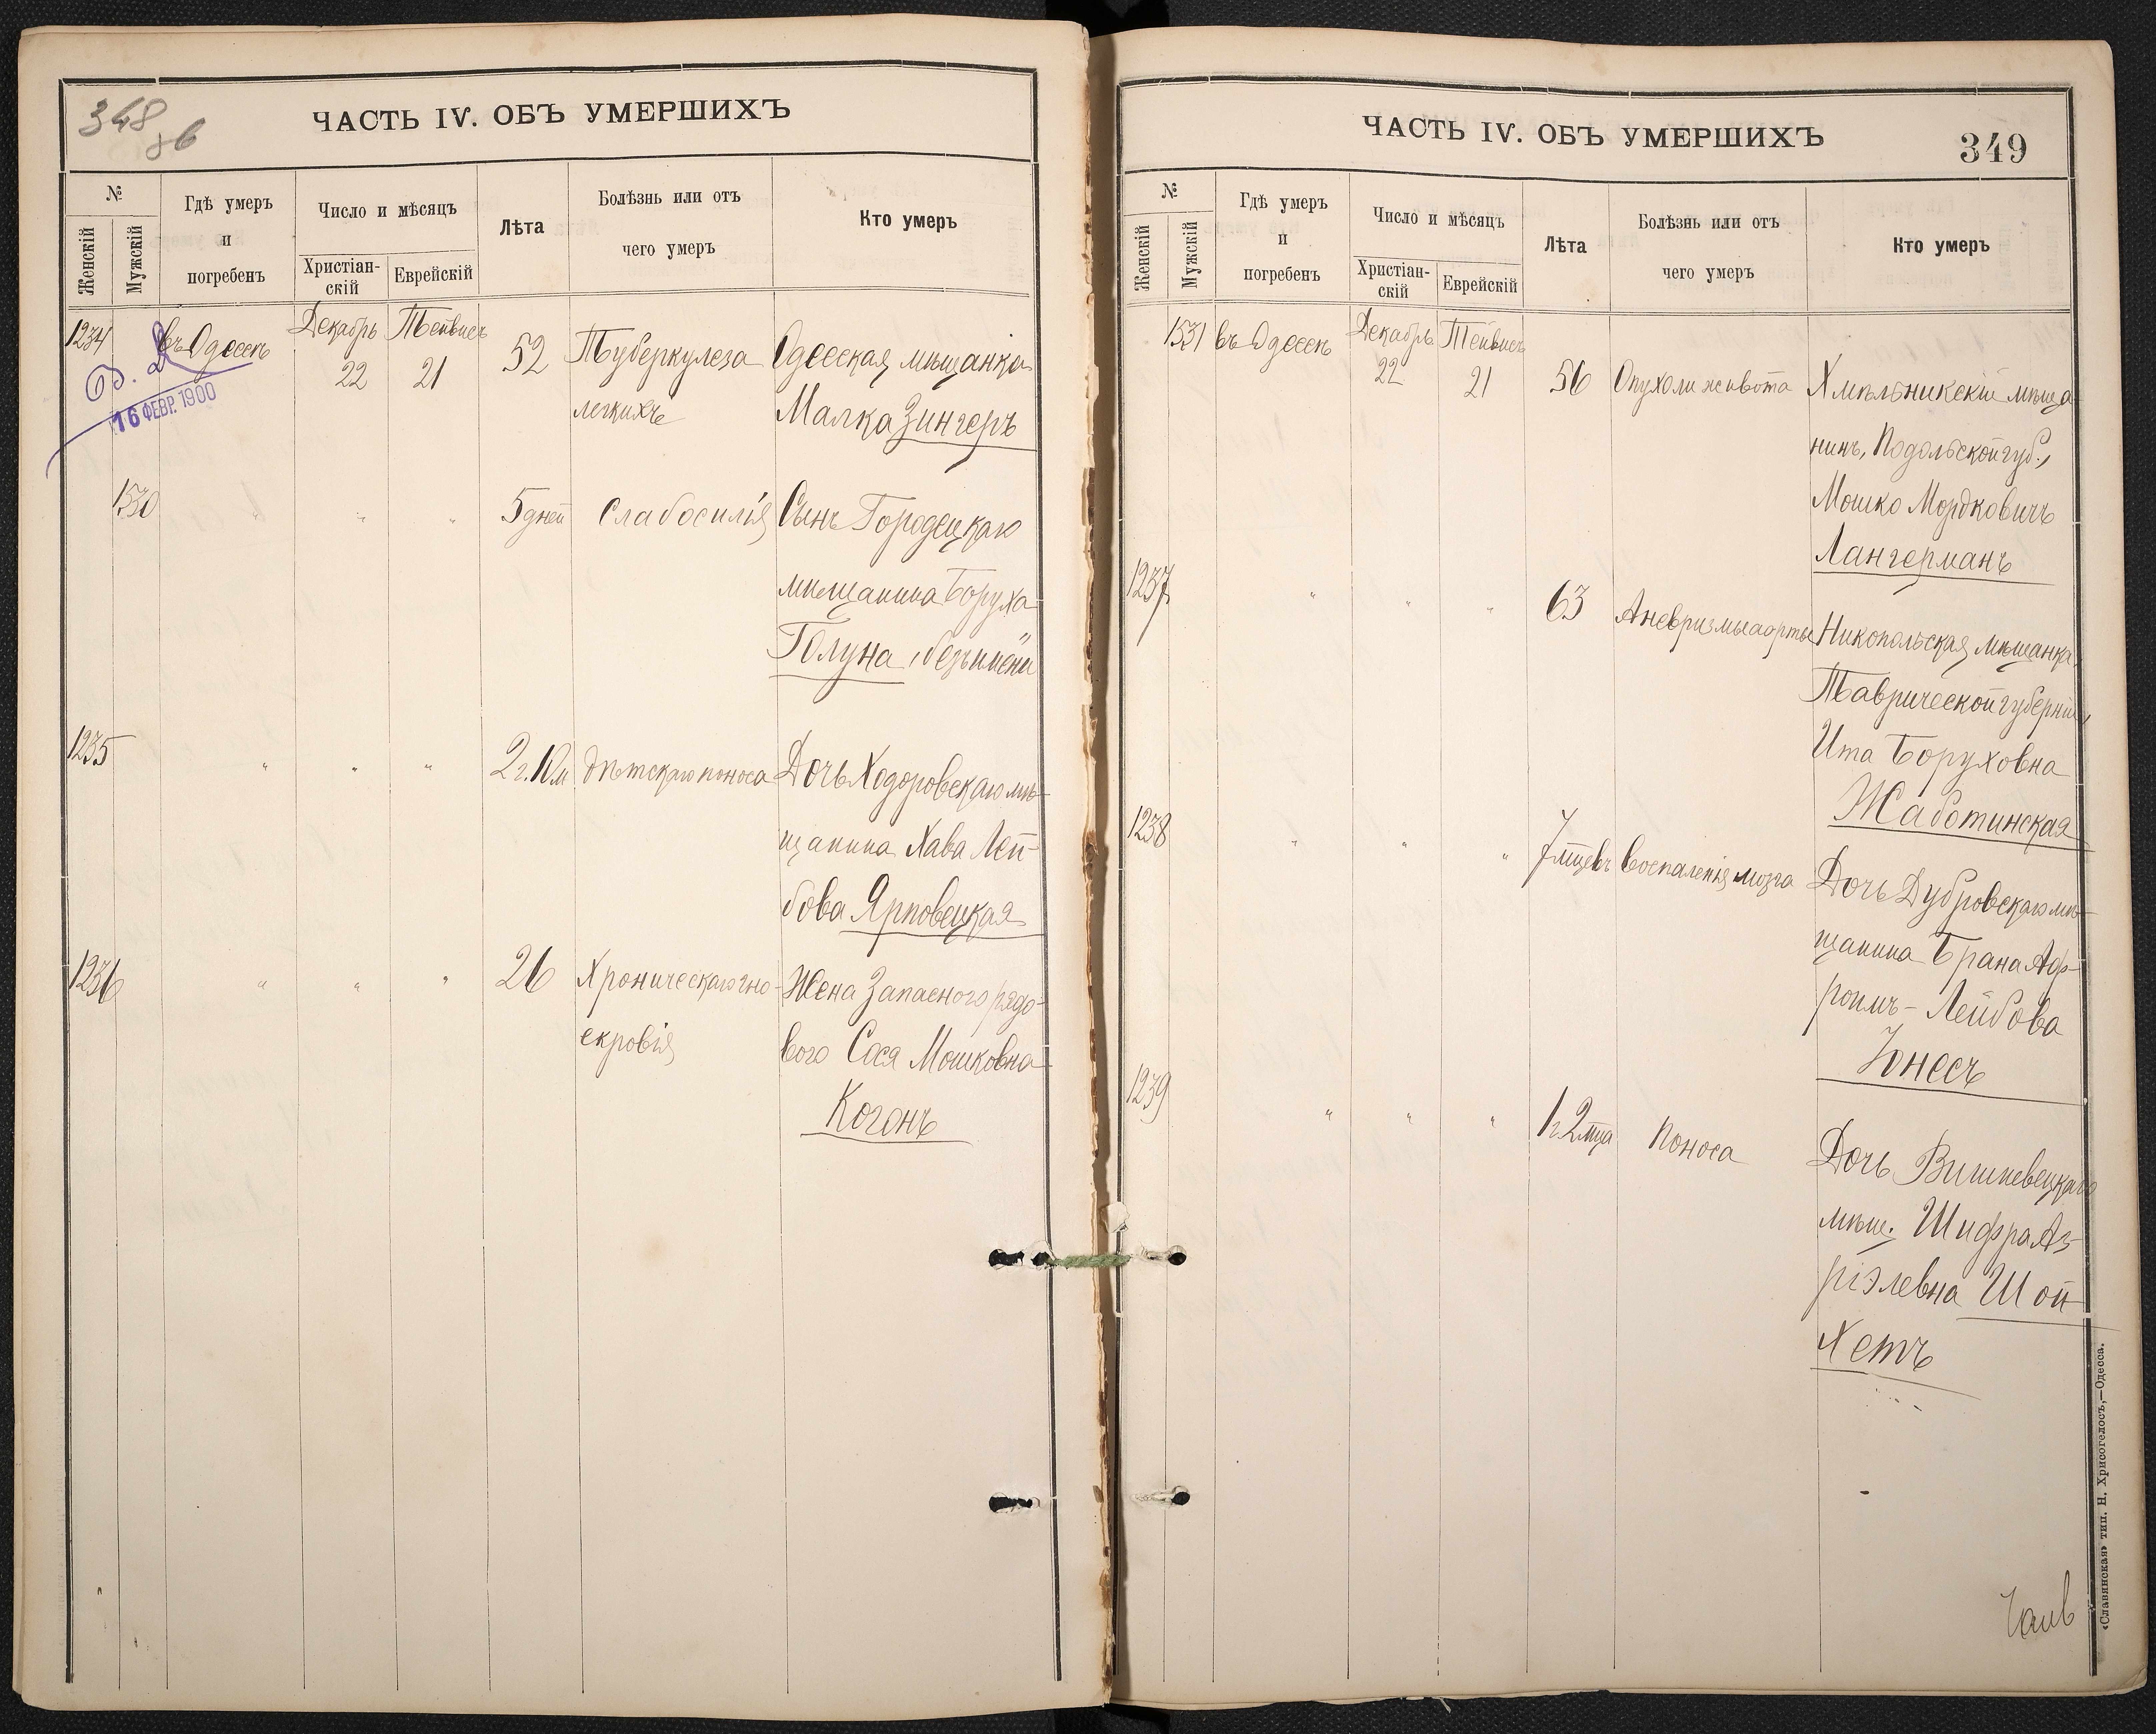 348
об
ЧАСТЬ IV. ОБЪ УМЕРШИХЪ
№
Женскій
Мужскій
Гдѣ умеръ
и
погребенъ
Число и мѣсяцъ
Христіан-
скій
Еврейскій
Лѣта
Болѣзнь или отъ
чего умеръ
Кто умеръ
1234 въ Одессѣ Декабрь Тейвисъ
22 21 52 Туберкулеза Одесская мѣщанка
легкихъ Малка Зингеръ
16 ФЕВР. 1900
1530 " " " 5 дней Слабосилія Сынъ Городецкаго
мѣщанина Боруха
Голуна, безъ имени
1235 " " " 2 г. 10 м дѣтскаго поноса Дочь Ходоровскаго мѣ-
щанина Хава Лей-
бова Ярповецкая
1236 " " " 26 Хроническаго гно- Жена Запасного рядо-
екровія вого Сося Мошковна
Когонъ
ЧАСТЬ IV. ОБЪ УМЕРШИХЪ
349
№
Женскій
Мужскій
Гдѣ умеръ
и
погребенъ
Число и мѣсяцъ
Христіан-
скій
Еврейскій
Лѣта
Болѣзнь или отъ
чего умеръ
Кто умеръ
1531 въ Одессѣ Декабрь Тейвисъ
22 21 56 Опухоли живота Хмѣльникскій мѣща-
нинъ, Подольской губ.,
Мошко Мордковичъ
Лангерманъ
1237 " " " 63 Аневризмы аорты Никопольская мѣщанка,
Таврической губерніи,
Ита Боруховна
Жаботинская
1238 " " " 7 мцевъ Воспаленія мозга Дочь Дубровскаго мѣ-
щанина Брана Аф-
роимъ-Лейбова
Юнесъ
1239 " " " 1 г. 2 мца Поноса Дочь Вишневецкаго
мѣщ. Шифра Аз-
ріэлевна Шой-
хетъ
«Славянская» тип. Н. Хрисогелосъ,—Одесса.